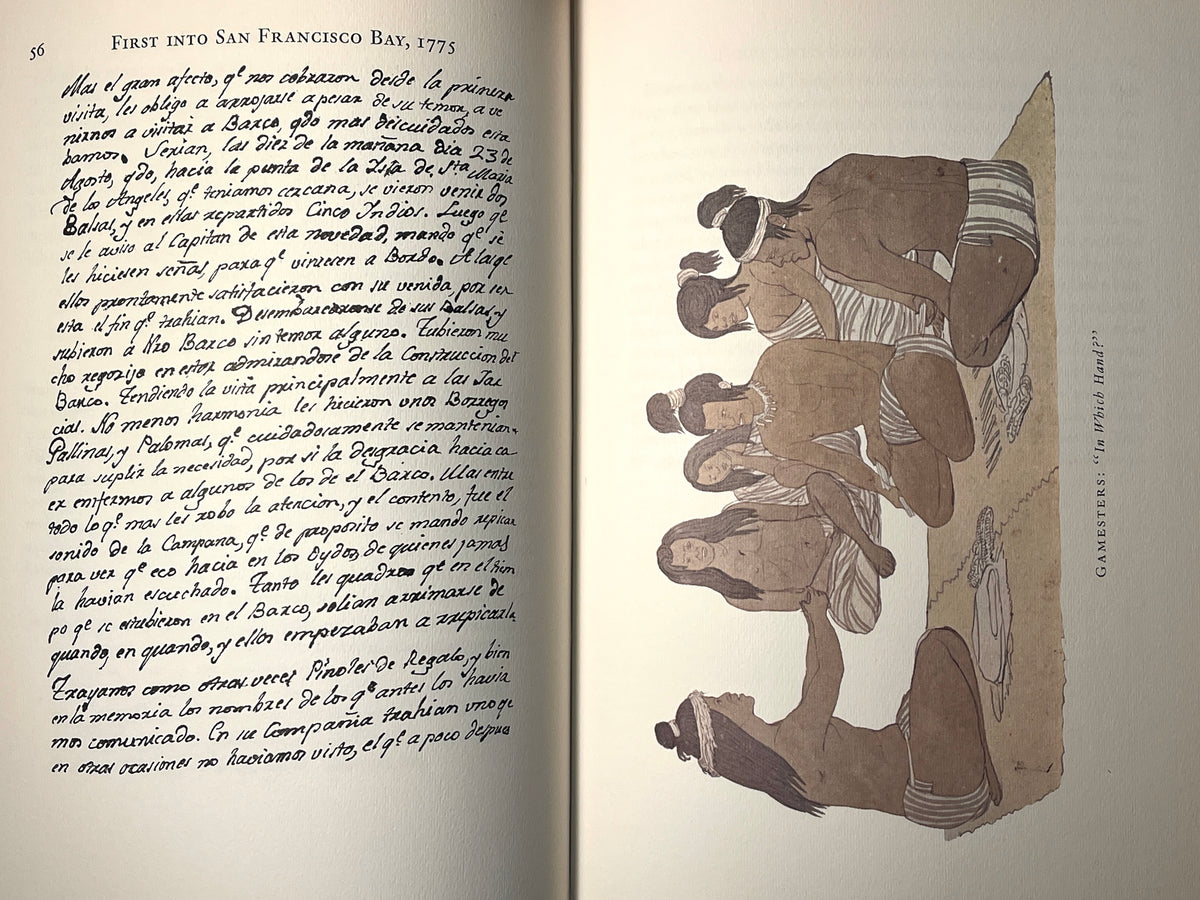 56
FIRST INTO SAN FRANCISCO BAY, 1775
Mas el gran afecto, qᵉ nos cobraron desde la primera
visita, les obligo a arrojarse a pesar de su temor, a ve
nirnos a visitar a Barco, qdo mas descuidados esta
bamos. Serian, las diez de la mañana dia 23 de
Agosto, qdo, hacia la punta de la Isla de Sta Maria
de los Angeles, qᵉ teniamos cercana, se vieron venir dos
Balsas, y en ellas repartidos Cinco Indios. Luego qᵉ
se le aviso al Capitan de esta novedad, mando qᵉ se
les hiciesen señas, para qᵉ viniesen a Bordo. A la qᵉ
ellos prontamente satisfacieron con su venida, por ser
esta el fin qᵉ trahian. Desembarcaronse de sus Balsas, y
subieron a Nro Barco sin temor alguno. Tubieron mu
cho regorijo en estar admirandose de la Construccion del
Barco. Tendiendo la vista principalmente a las Jar
cias. No menos harmonia les hicieron unos Borregos
Gallinas, y Palomas, qᵉ cuidadosamente se mantenian
para suplir la necesidad, por si la desgracia hacia ca
er enfermos a algunos de los de el Barco. Mas entre
todo lo qᵉ mas les robo la atencion, y el contento, fue el
sonido de la Campana, qᵉ de proposito se mando repicar
para ver qᵉ eco hacia en los Oydos de quienes jamas
la havian escuchado. Tanto les quadro qᵉ en el tiem
po qᵉ se estubieron en el Barco, solian arrimarse de
quando, en quando, y ellos empezaban a rrepicarla.
Trayamos como otras veces Pinoles de Regalo, y bien
en la memoria los nombres de los qᵉ antes los havia
mos comunicado. En su Compañia trahian uno qᵉ
en otras ocasiones no haviamos visto, el qᵉ a poco despues
GAMESTERS: "In Which Hand?"